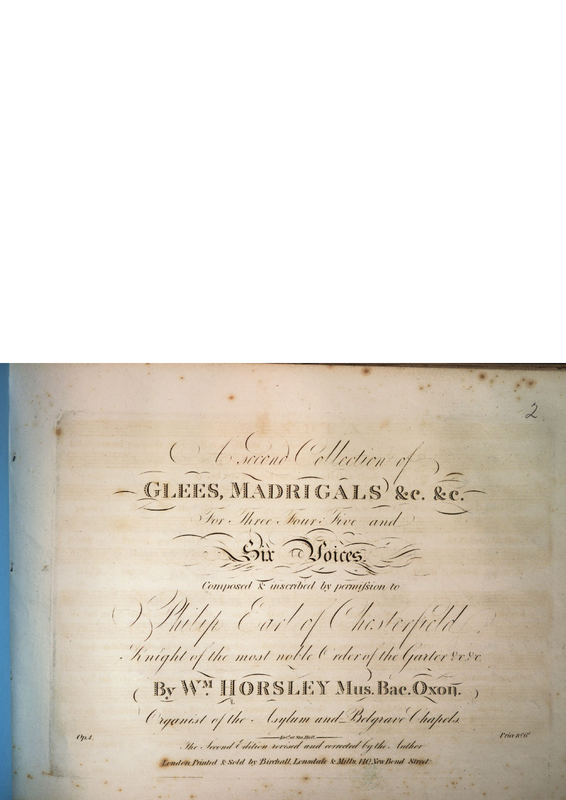 2
A second Collection of
GLEES, MADRIGALS &c. &c.
For Three Four Five and
Six Voices,
Composed & inscribed by permiſsion to
Philip Earl of Chesterfield
Knight of the most noble Order of the Garter &c &c
By Wᴹ HORSLEY Mus. Bac. Oxon.
Organist of the Asylum and Belgrave Chapels.
Op. 4.
The Second Edition revised and corrected by the Author
London, Printed & Sold by Birchall, Lonsdale & Mills, 140, New Bond Street.